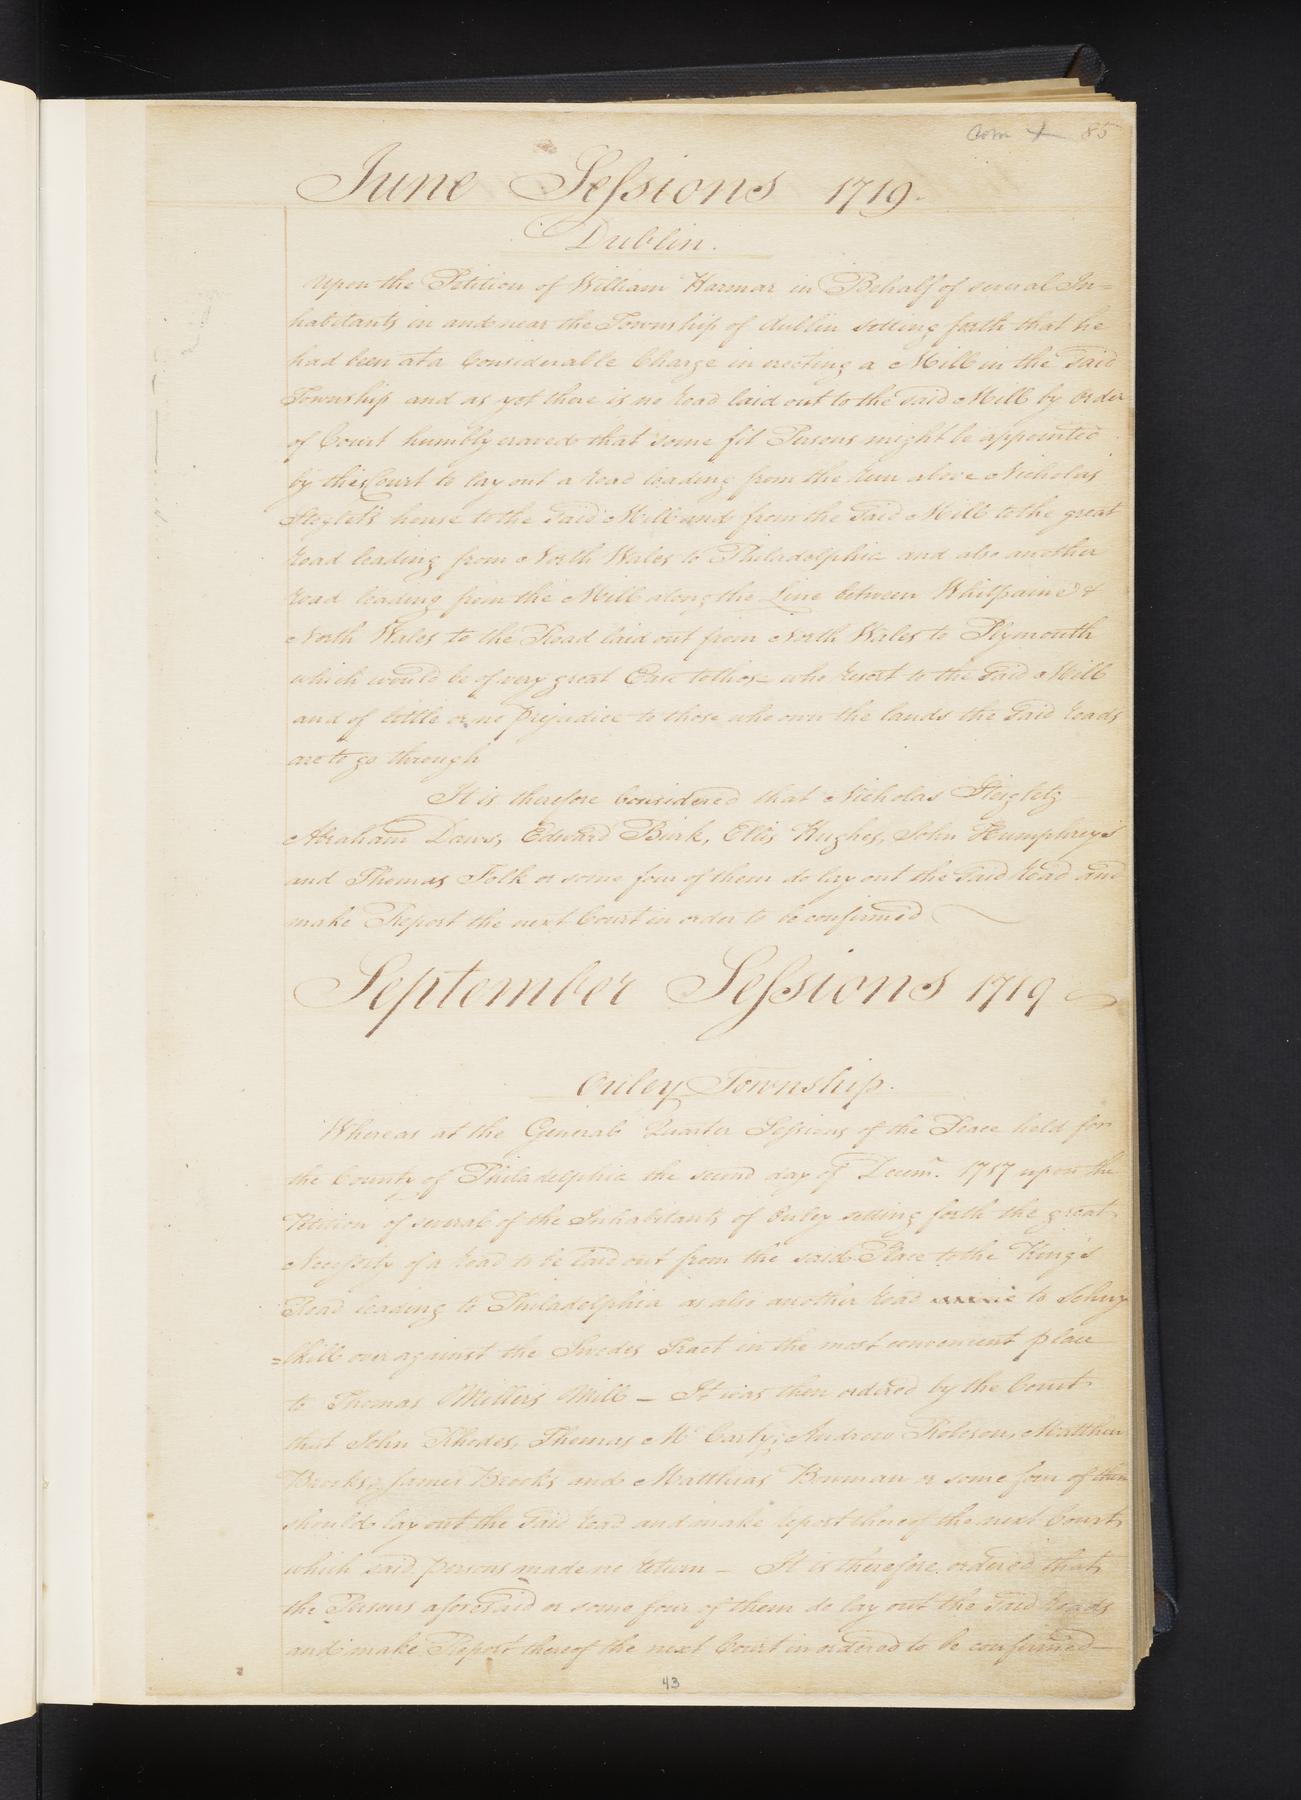 Com 85
June Sessions 1719.
Dublin.
Upon the Petition of William Harmar in Behalf of several In=
habitants in and near the Township of dublin setting forth that he
had been at a Considerable Charge in erecting a Mill in the Said
Township and as yet there is no road laid out to the said Mill by Order
of Court humbly craved that some fit Persons might be appointed
by this Court to lay out a road leading from the Run above Nicholas
house to the Said Mill and from the Said Mill to the great
road leading from North Wales to Philadelphia and also another
road leading from the Mill along the Line between Whitpaine &
North Wales to the Road laid out from North Wales to Plymouth
which would be of very great Ease to those who resort to the Said Mill
and of little or no prejudice to those who own the lands the Said roads
are to go through
It is therefore Considered that Nicholas
Abraham Daws, Edward Burk, Ellis Hughes, John Humphreys
and Thomas Folk or some four of them do lay out the Said road and
make Report the next Court in order to be confirmed
September Sessions 1719
Township.
Whereas at the General Quarter Sessions of the Peace held for
the County of Philadelphia the second day of Decemr. 1717 upon the
Petition of several of the Inhabitants of setting forth the great
Necessity of a road to be laid out from the said Place to the King's
Road leading to Philadelphia as also another road to Schuy
=lkill over against the Swedes Tract in the most convenient place
to Thomas Millers Mill – It was then ordered by the Court
that John Rhodes, Thomas Mc Carty, Andrew Robeson, Matthew
Brooks, James Brooks and Matthias Bowman or some four of them
should lay out the Said road and make report thereof the next Court
which said persons made no return – It is therefore ordered that
the Persons aforesaid or some four of them do lay out the Said roads
and make Report thereof the next Court in ordered to be confirmed –
43